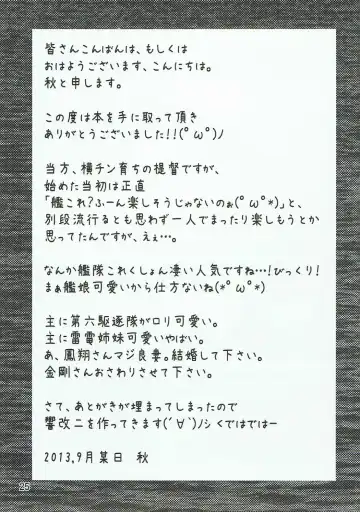 皆さんこんばんは、もしくは
おはようございます、こんにちは。
秋と申します。
この度は本を手に取って頂き
ありがとうございました!!(ﾟωﾟ)ﾉ
当方、横チン育ちの提督ですが、
始めた当初は正直
「艦これ?ふーん楽しそうじゃないのぉ(ﾟωﾟ*)」と、
別段流行るとも思わず一人でまったり楽しもうとか
思ってたんですが、えぇ…。
なんか艦隊これくしょん凄い人気ですね…!びっくり!
まぁ艦娘可愛いから仕方ないね(*ﾟωﾟ)
主に第六駆逐隊がロリ可愛い。
主に雷電姉妹可愛いやばい。
あ、鳳翔さんマジ良妻。結婚して下さい。
金剛さんおさわりさせて下さい。
さて、あとがきが埋まってしまったので
響改二を作ってきます(´∀`)ノシくではではー
2013.9月某日 秋
25